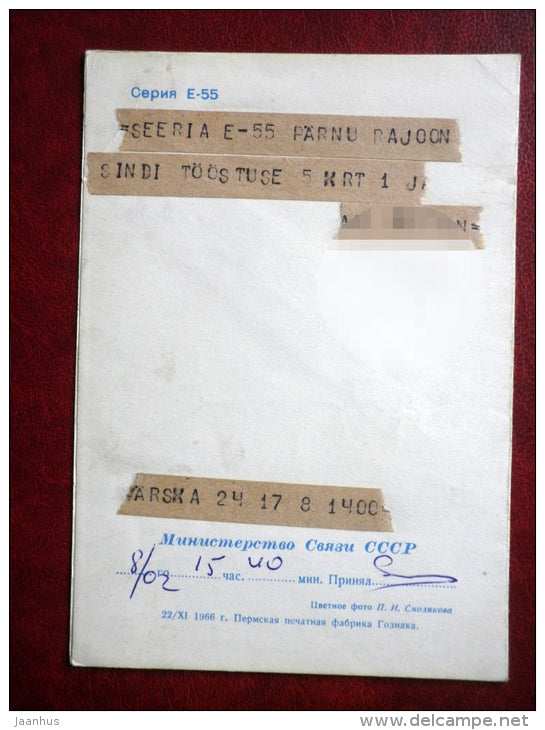 Серия Е-55
=SEERIA E-55 PÄRNU RAJOON
SINDI TÖÖSTUSE 5 KRT 1
VÄRSKA 24 17 8 1400=
Министерство Связи СССР
8/02 го 15 час. 40 мин. Принял
Цветное фото П. И. Смолякова
22/XI 1966 г. Пермская печатная фабрика Гознака.
jaanhus
delcampe.net